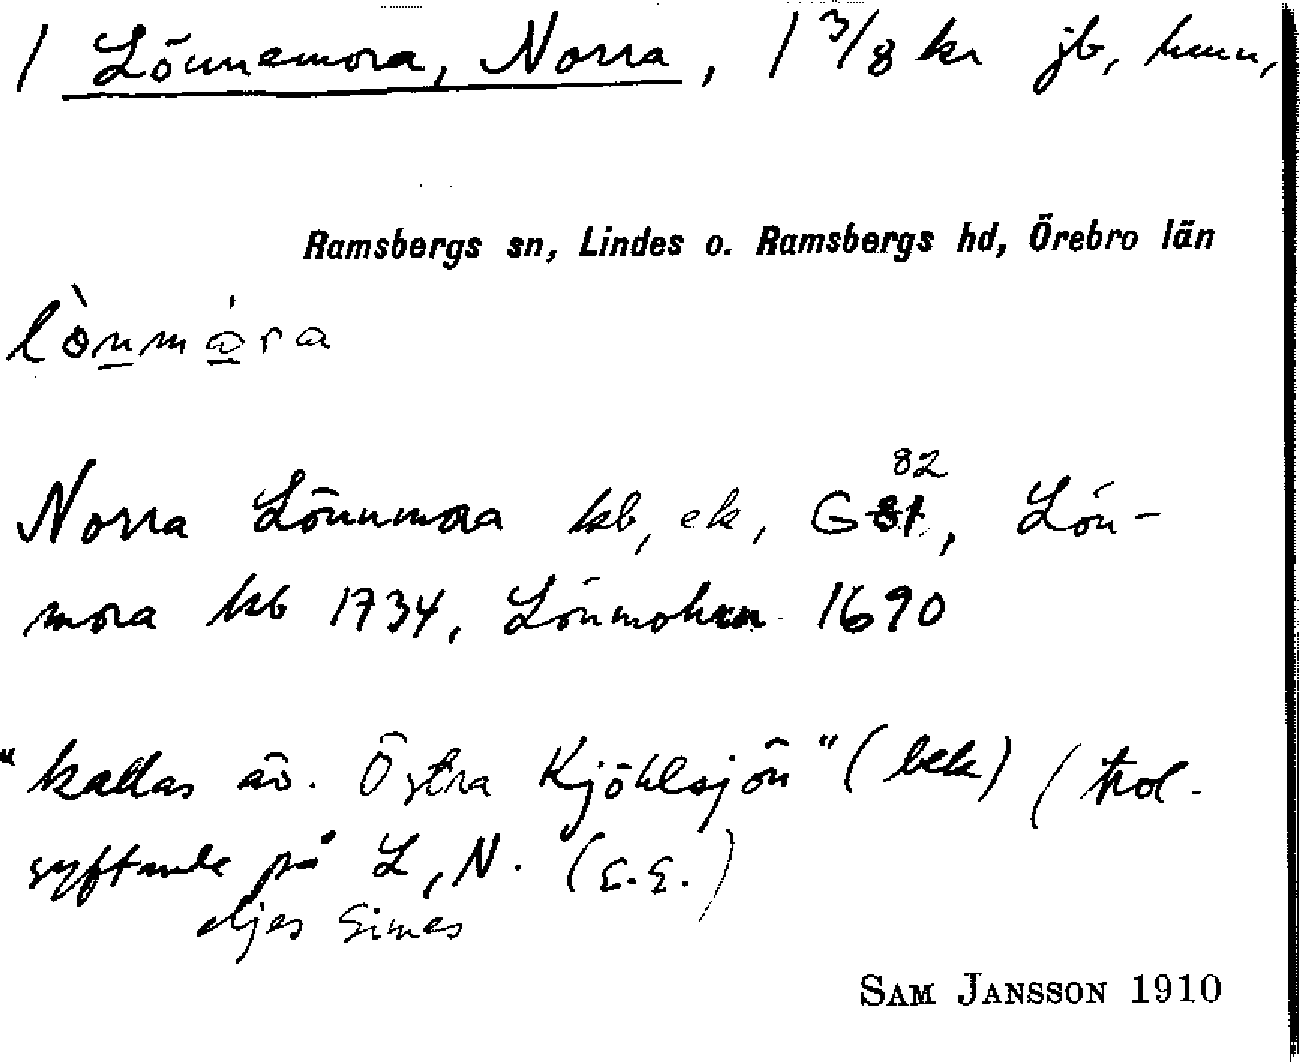 1 Lönnemora, Norra, 1 3/8 kr jb, hmn,
Ramsbergs sn, Lindes o. Ramsbergs hd, Örebro län
lònmåra
Norra Lönnmora kb, ek, G 81 82, Lön-
mora kb 1734, Lönmohra 1690
"kallas äv. Östra Kjöhlsjön" (bek) (trol.
syftande på L, N. (E.E.)
SAM JANSSON 1910